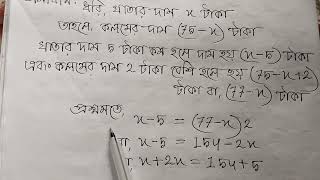 ধরি, খাতার দাম x টাকা
তাহলে, কলমের দাম (75-x) টাকা
খাতার দাম 5 টাকা কম হলে দাম হয় (x-5) টাকা
এবং কলমের দাম 2 টাকা বেশি হলে হয় (75-x+2)
টাকা বা, (77-x) টাকা
প্রশ্নমতে, x-5 = (77-x)2
বা, x-5 = 154-2x
বা, x+2x = 154+5